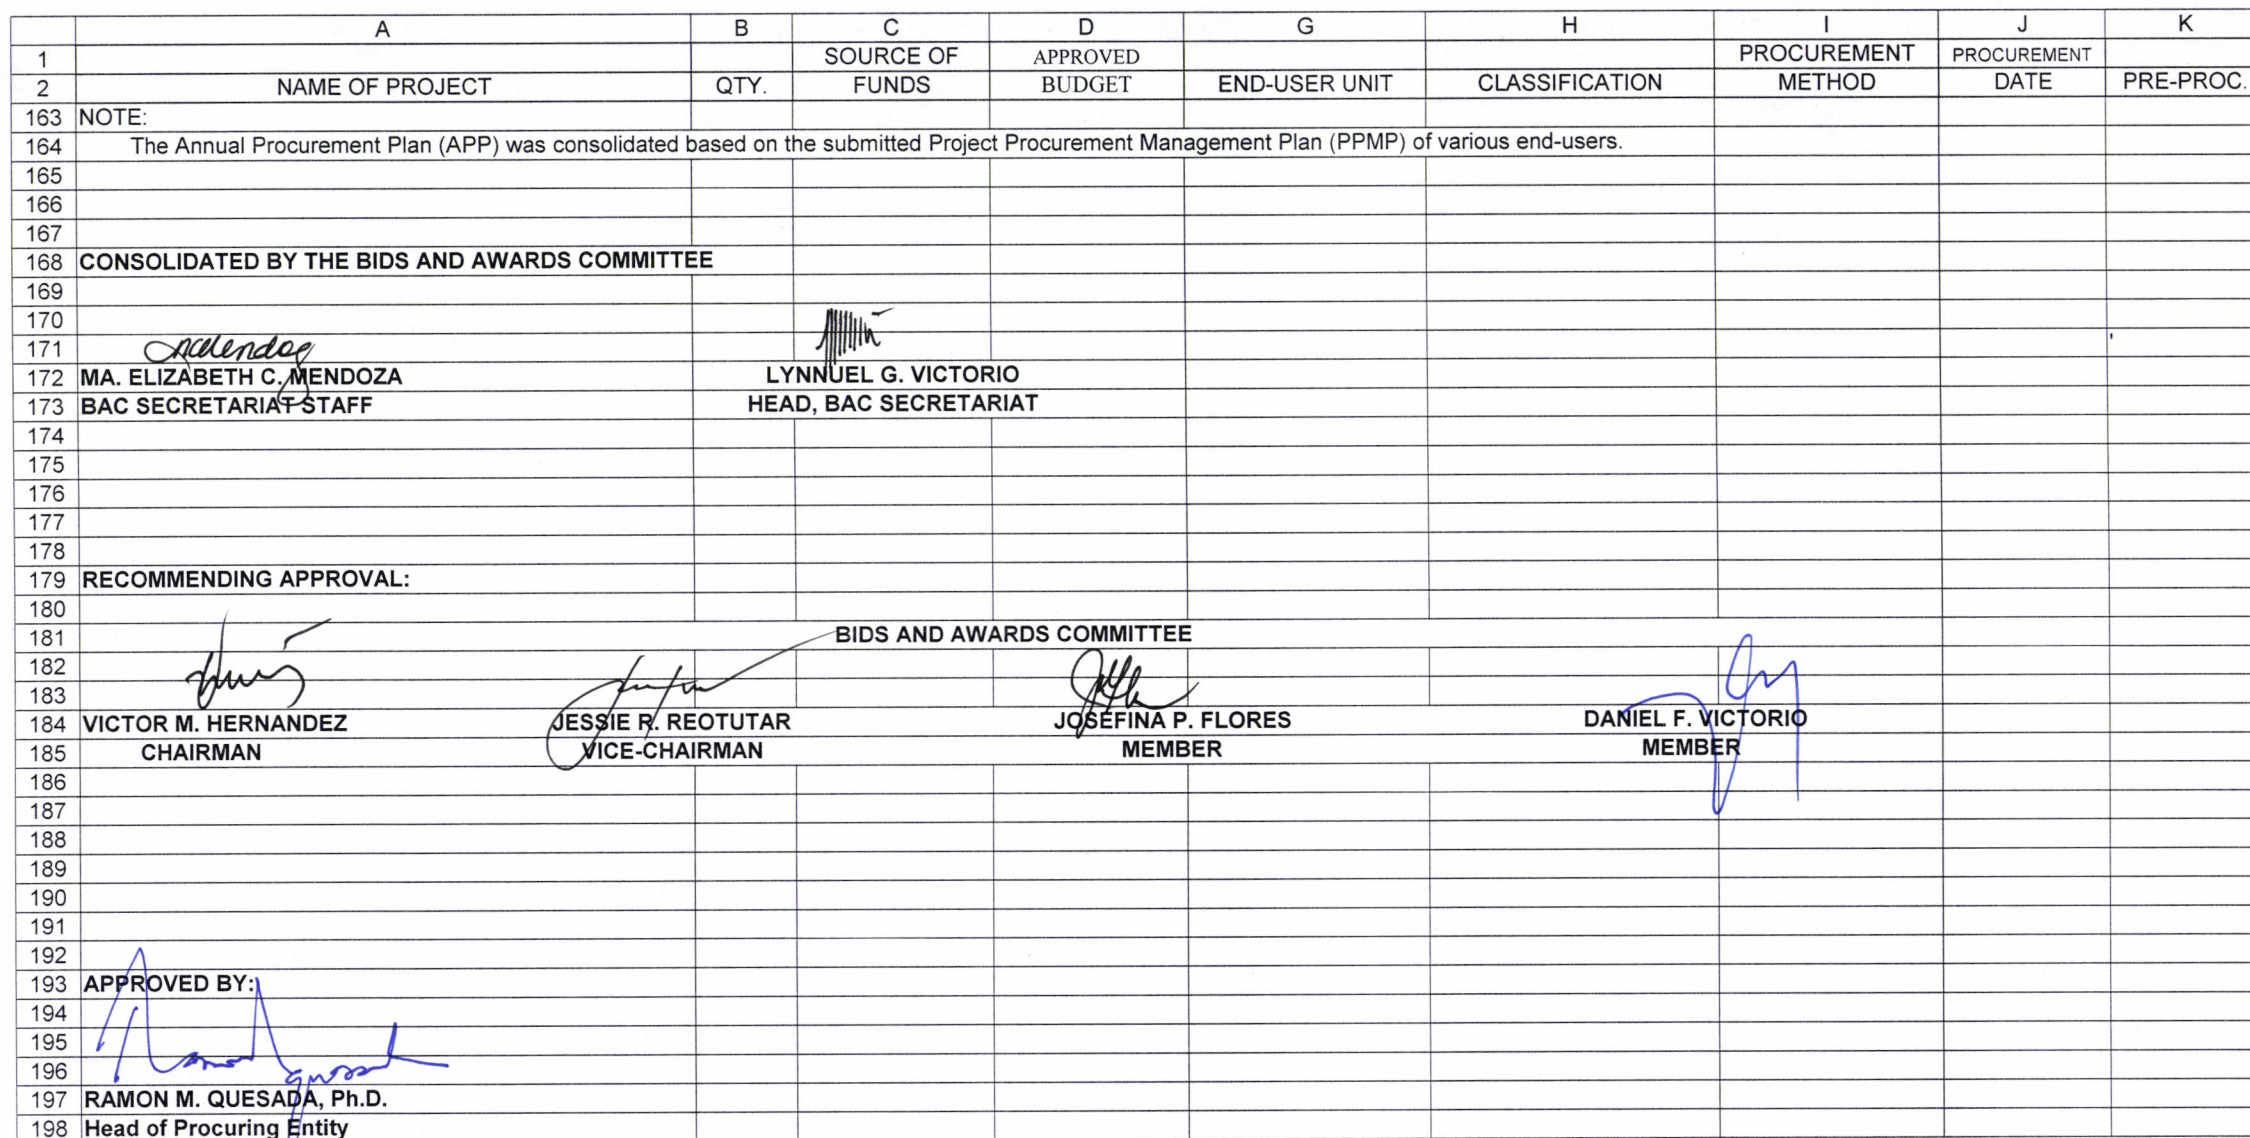 A B C D G H I J K
1 SOURCE OF APPROVED PROCUREMENT PROCUREMENT
2 NAME OF PROJECT QTY. FUNDS BUDGET END-USER UNIT CLASSIFICATION METHOD DATE PRE-PROC.
163 NOTE:
164 The Annual Procurement Plan (APP) was consolidated based on the submitted Project Procurement Management Plan (PPMP) of various end-users.
165
166
167
168 CONSOLIDATED BY THE BIDS AND AWARDS COMMITTEE
169
170
171
172 MA. ELIZABETH C. MENDOZA LYNNUEL G. VICTORIO
173 BAC SECRETARIAT STAFF HEAD, BAC SECRETARIAT
174
175
176
177
178
179 RECOMMENDING APPROVAL:
180
181 BIDS AND AWARDS COMMITTEE
182
183
184 VICTOR M. HERNANDEZ JESSIE R. REOTUTAR JOSEFINA P. FLORES DANIEL F. VICTORIO
185 CHAIRMAN VICE-CHAIRMAN MEMBER MEMBER
186
187
188
189
190
191
192
193 APPROVED BY:
194
195
196
197 RAMON M. QUESADA, Ph.D.
198 Head of Procuring Entity